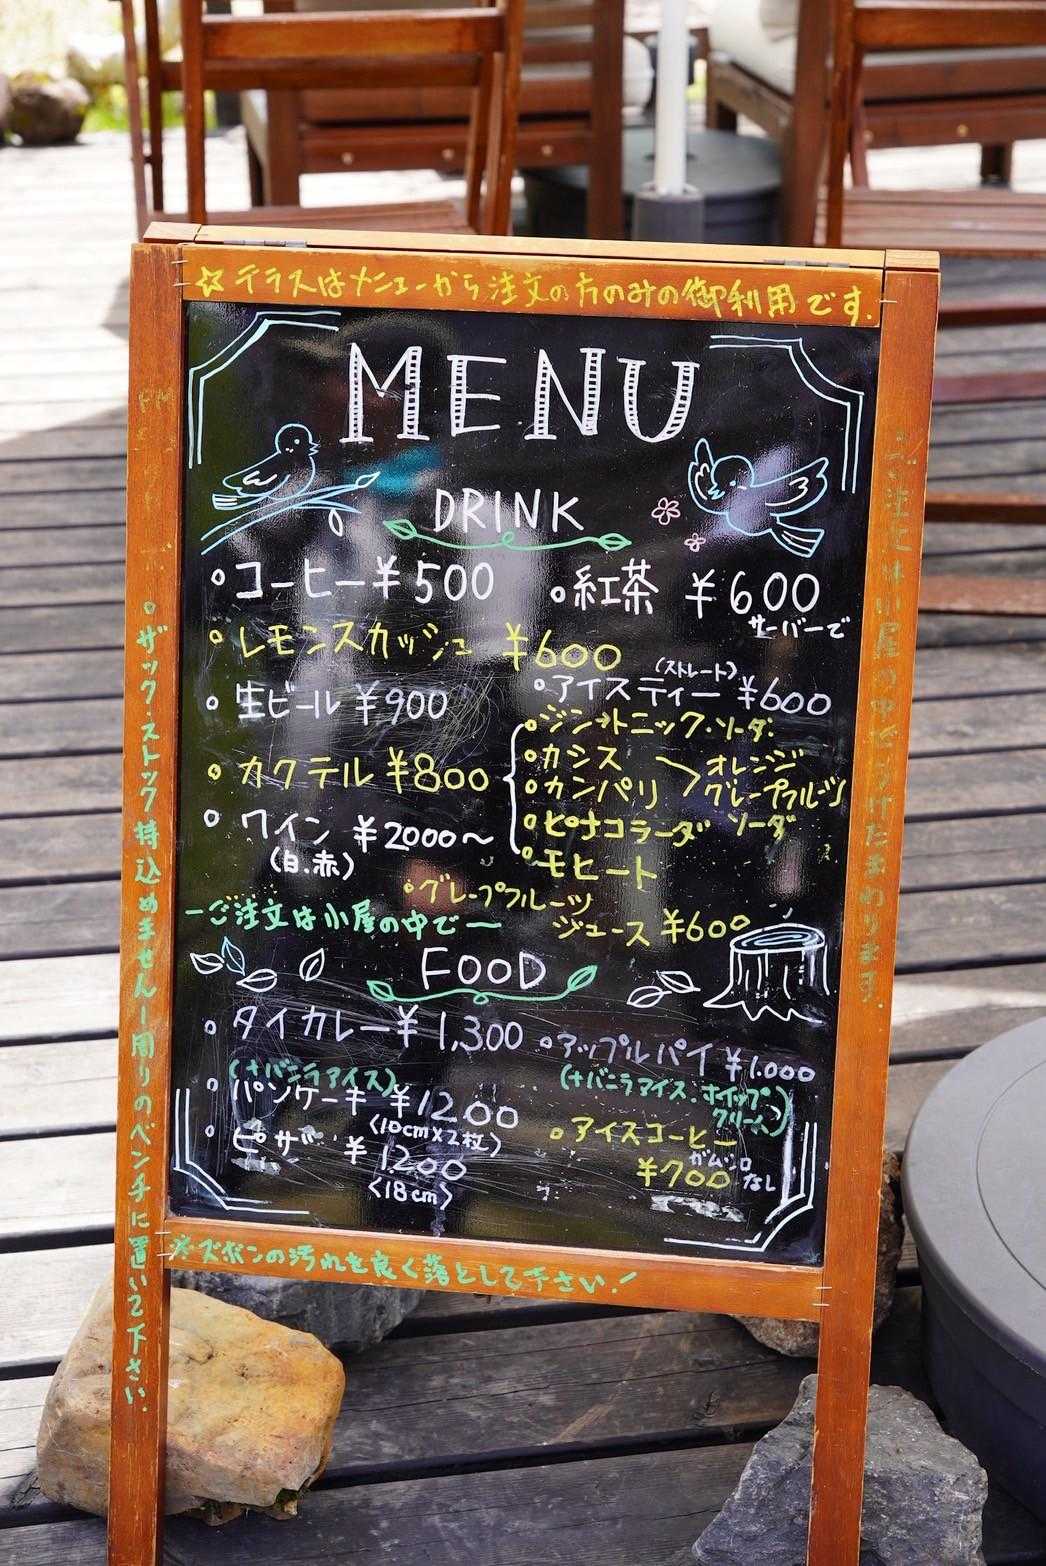 ☆テラスはメニューから注文の方のみの御利用です.
MENU
DRINK
コーヒー ¥500
紅茶 ¥600
サーバーで
レモンスカッシュ ¥600
(ストレート)
生ビール ¥900
アイスティー ¥600
ジン→トニック・ソーダ
カクテル ¥800
カシス
カンパリ
オレンジ
グレープフルーツ
ソーダ
ピナコラーダ
モヒート
ワイン ¥2000〜
(白.赤)
グレープフルーツ
ジュース ¥600
ーご注文は小屋の中でー
FOOD
タイカレー ¥1,300
アップルパイ ¥1.000
(+バニラアイス・ホイップ
クリーム)
(+バニラアイス)
パンケーキ ¥1200
<10cm×2枚>
ピザ ¥1200
<18cm>
アイスコーヒー
¥700 ガムシロ
なし
※ズボンの汚れを良く落として下さい!
○ザック.ストック持込めません!周りのベンチに置いて下さい.
ご注文は小屋の中でうけたまわります.